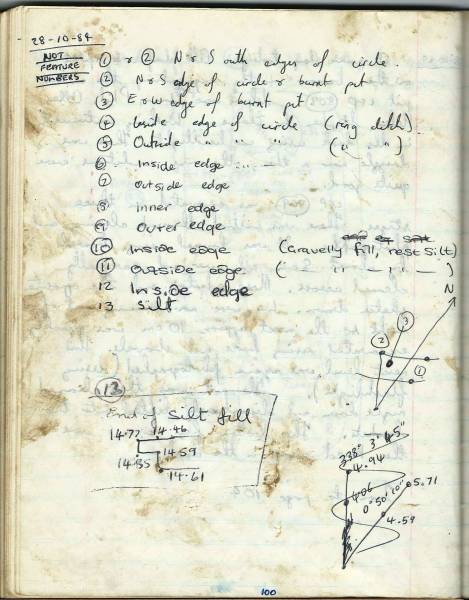 28-10-84
NOT
FEATURE
NUMBERS
① & ② N & S outh edges of circle.
② N & S edge of circle & burnt pit
③ E & W edge of burnt pit
④ Inside edge of circle (ring ditch)
⑤ Outside " " " (" ")
⑥ Inside edge
⑦ outside edge
⑧ inner edge
⑨ outer edge
⑩ Inside edge (Gravelly fill, rest silt)
⑪ Outside edge ( " — " — " — )
12 Inside edge
13 Silt
N
③
②
①
⑬
End of silt fill
14.77 14.46
14.59
14.85
14.61
338° 3' 45"
4.94
4.06
0° 50' 20"
5.71
4.59
100